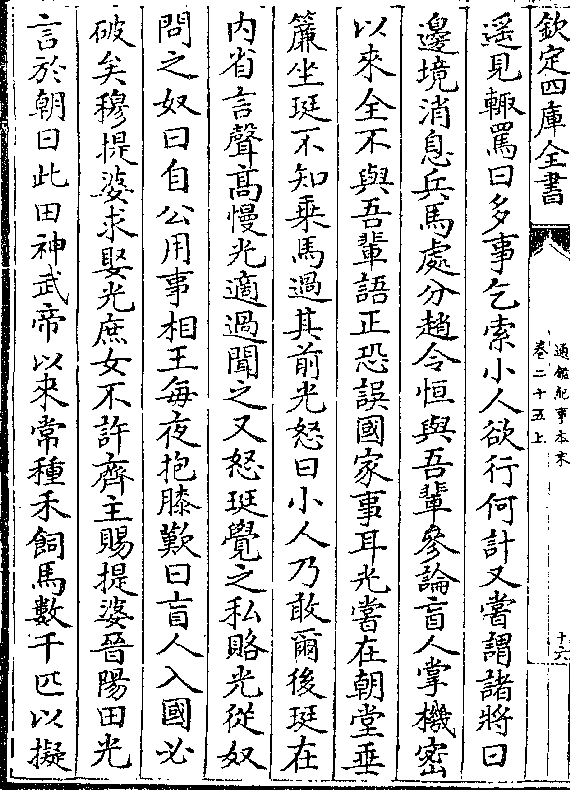 欽定四庫全書
通鑑紀事本末
卷二十五上
十六
遥見輙罵曰多事乞索小人欲行何計又嘗謂諸將曰
邊境消息兵馬處分趙令恒與吾輩參論盲人掌機密
以來全不與吾輩語正恐誤國家事耳光嘗在朝堂垂
簾坐珽不知乘馬過其前光怒曰小人乃敢爾後珽在
内省言聲髙慢光適過聞之又怒珽覺之私賂光從奴
問之奴曰自公用事相王每夜抱膝歎曰盲人入國必
破矣穆提婆求娶光庶女不許齊主賜提婆晉陽田光
言於朝曰此田神武帝以來常種禾飼馬數千匹以擬